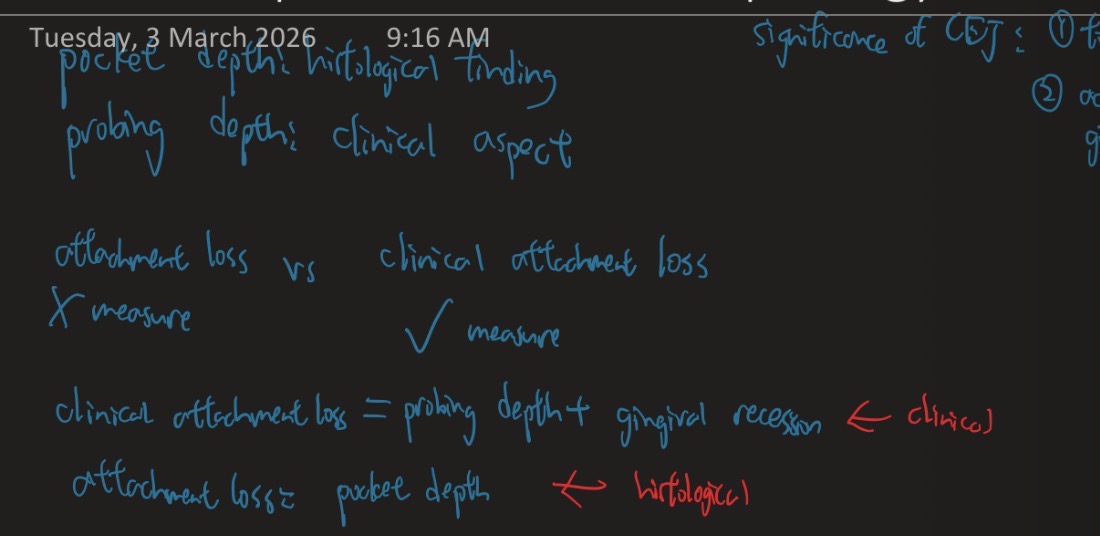 Tuesday, 3 March 2026 9:16 AM
pocket depth: histological finding
probing depth: clinical aspect
significance of CEJ: ①
②
attachment loss vs clinical attachment loss
X measure ✓ measure
clinical attachment loss = probing depth + gingival recession ← clinical
attachment loss = pocket depth ← histological